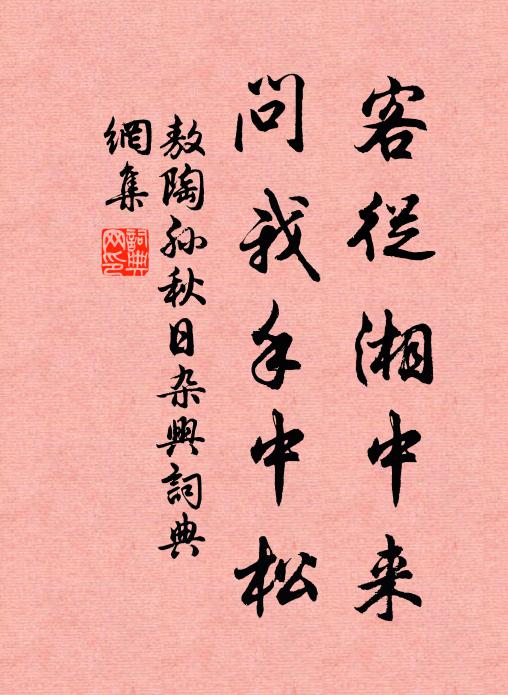 客從湘中来
問我手中松
敖陶孙秋日杂興詞典
網集
詞典
网印